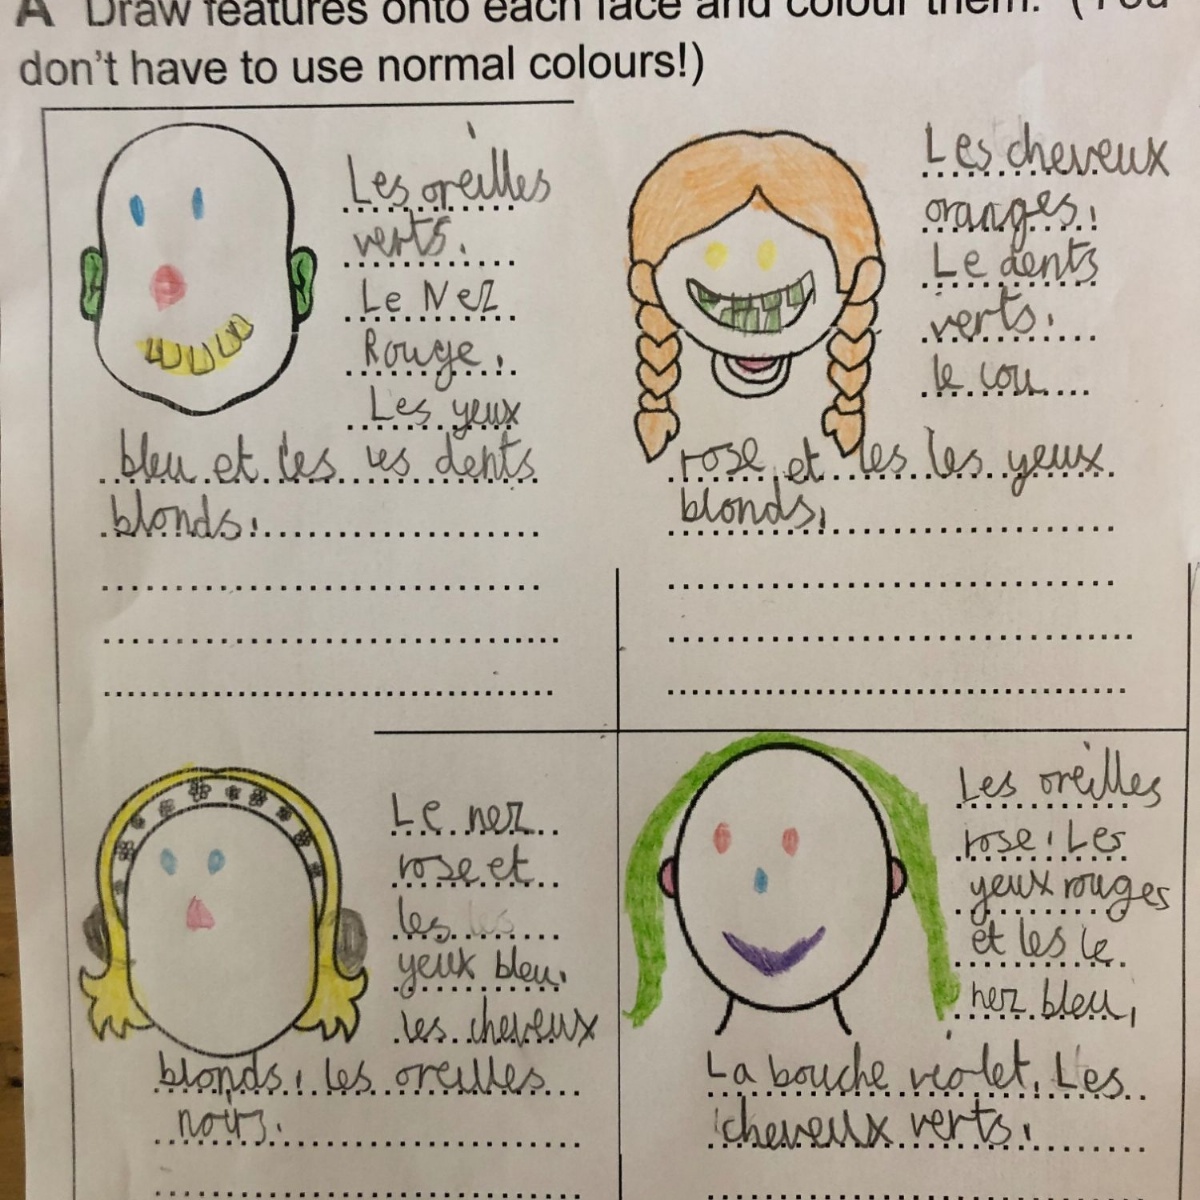 A Draw features onto each face and colour them. (You
don't have to use normal colours!)
Les oreilles
verts.
Le Nez
Rouge.
Les yeux
bleu et les les dents
blonds.
Les cheveux
oranges.
Le dents
verts.
le cou
rose et les les yeux
blonds,
Le nez
rose et
les les
yeux bleu.
les cheveux
blonds. les oreilles
noirs.
Les oreilles
rose. Les
yeux rouges
et les le
nez bleu,
La bouche violet. Les
cheveux verts.